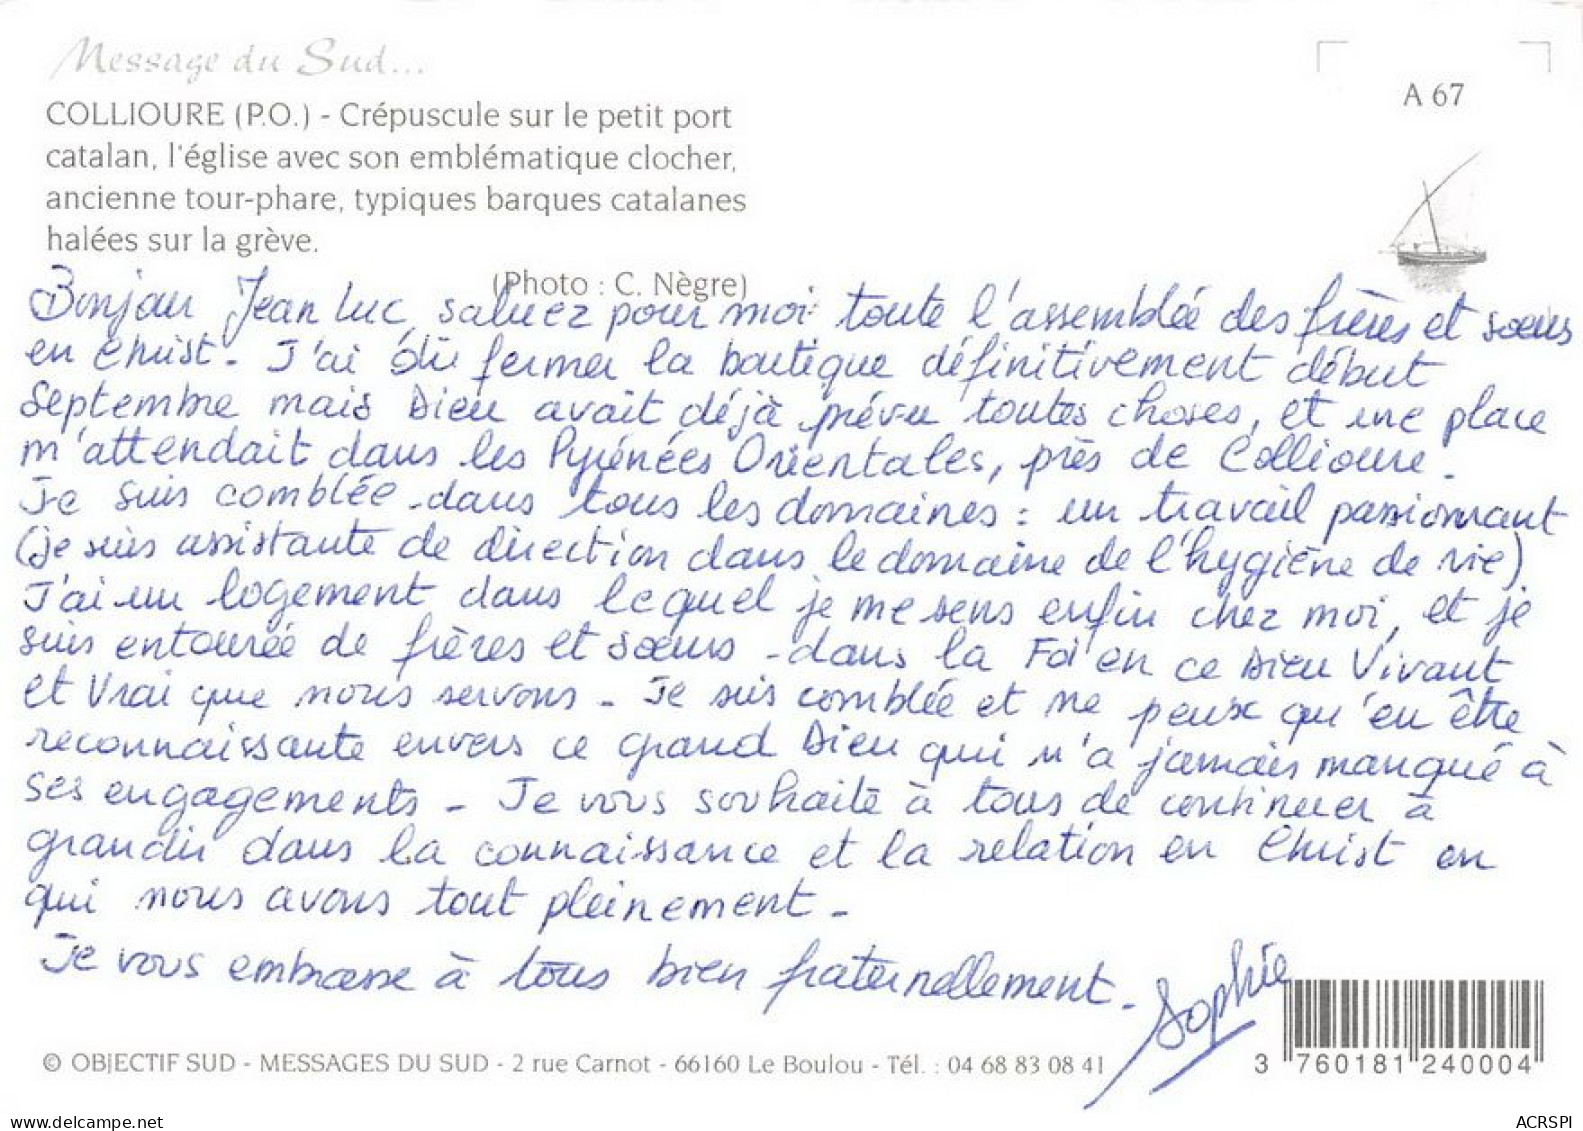 Message du Sud...
A 67
COLLIOURE (P.O.) - Crépuscule sur le petit port
catalan, l'église avec son emblématique clocher,
ancienne tour-phare, typiques barques catalanes
halées sur la grève.
(Photo : C. Nègre)
Bonjour Jean Luc, saluez pour moi toute l'assemblée des frères et sœurs
en Christ. J'ai dû fermer la boutique définitivement début
Septembre mais Dieu avait déjà prévu toutes choses, et une place
m'attendait dans les Pyrénées Orientales, près de Collioure.
Je suis comblée dans tous les domaines : un travail passionnant
(je suis assistante de direction dans le domaine de l'hygiène de vie)
J'ai un logement dans lequel je me sens enfin chez moi, et je
suis entourée de frères et sœurs dans la Foi en ce Dieu Vivant
et Vrai que nous servons - Je suis comblée et ne peux qu'en être
reconnaissante envers ce grand Dieu qui n'a jamais manqué à
ses engagements - Je vous souhaite à tous de continuer à
grandir dans la connaissance et la relation en Christ en
qui nous avons tout pleinement -
Je vous embrasse à tous bien fraternellement -
Sophie
© OBJECTIF SUD - MESSAGES DU SUD - 2 rue Carnot - 66160 Le Boulou - Tél. : 04 68 83 08 41
3 760181 240004
www.delcampe.net
ACRSPI